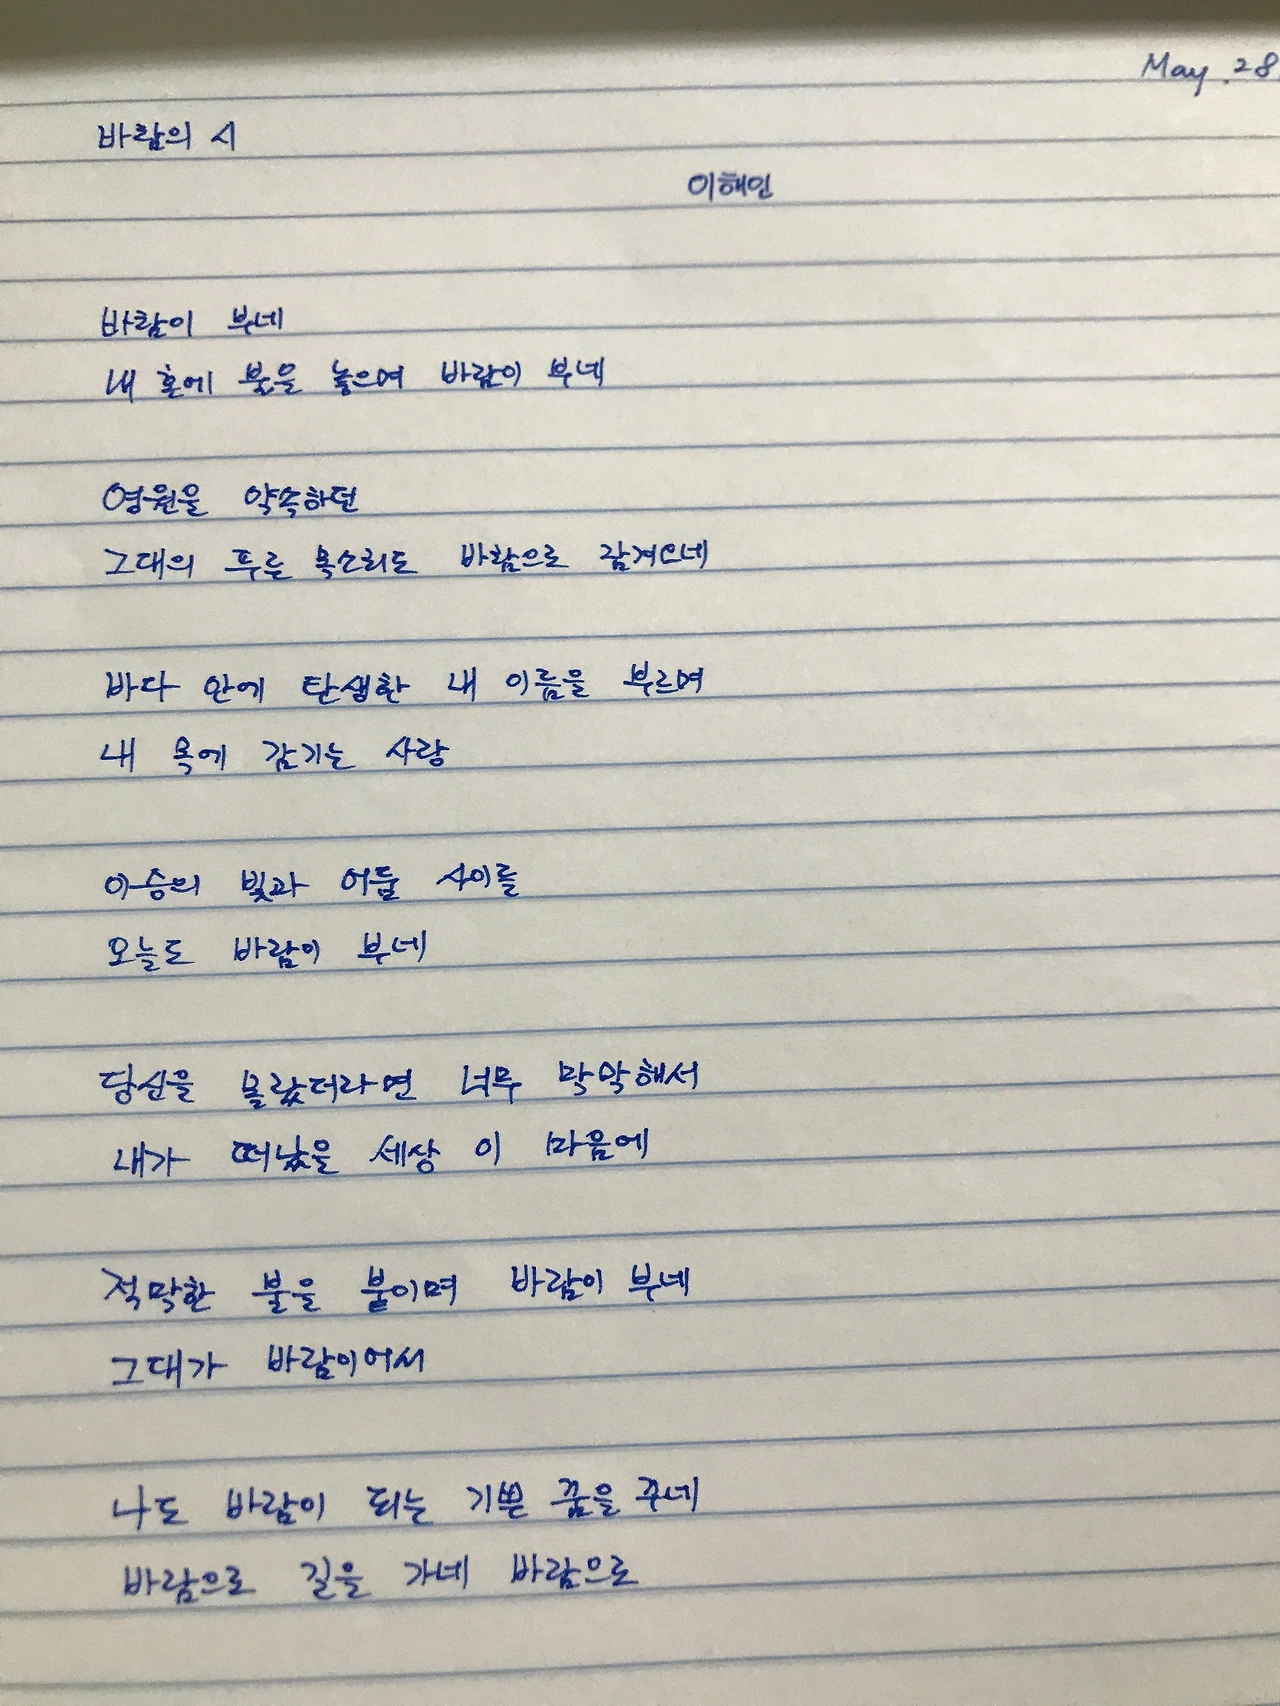 May. 28
바람의 시
이해인
바람이 부네
내 혼에 불을 놓으며 바람이 부네
영원을 약속하던
그대의 푸른 목소리도 바람으로 감겨오네
바다 안에 탄생한 내 이름을 부르며
내 목에 감기는 사랑
이승의 빛과 어둠 사이를
오늘도 바람이 부네
당신을 몰랐더라면 너무 막막해서
내가 떠났을 세상 이 마음에
적막한 불을 붙이며 바람이 부네
그대가 바람이어서
나도 바람이 되는 기쁜 꿈을 꾸네
바람으로 길을 가네 바람으로